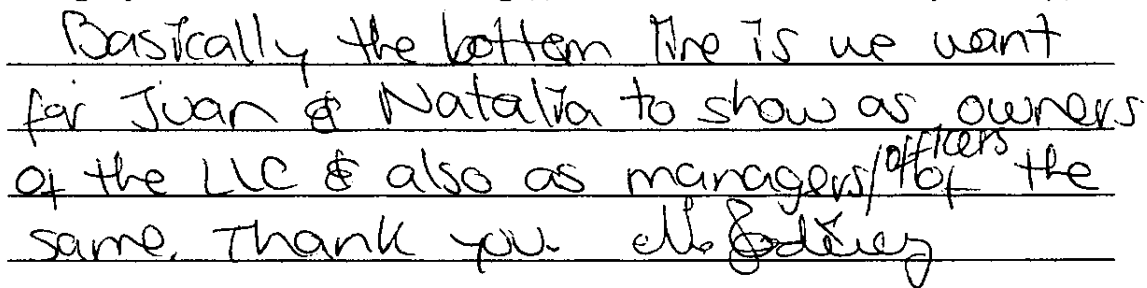 Basically the bottom line is we want
for Juan & Natalia to show as owners
of the LLC & also as managers/officers of the
same. Thank you.